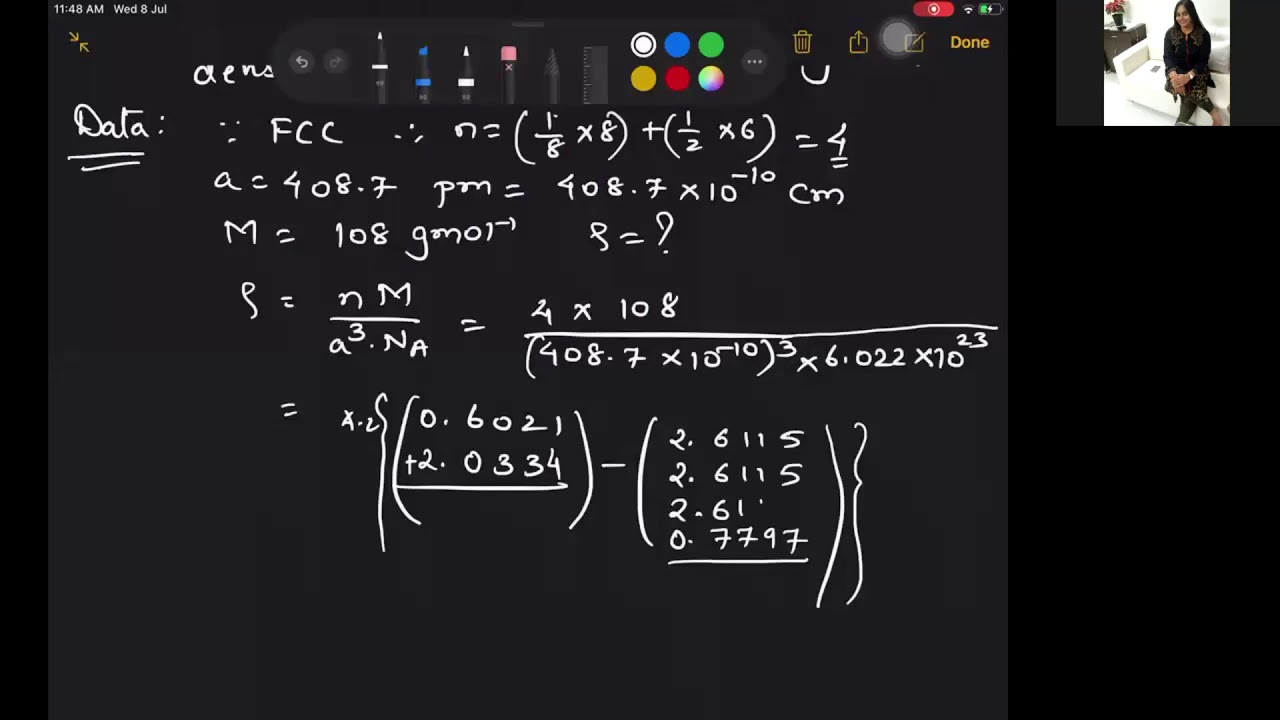 11:48 AM Wed 8 Jul
Done
Data: ∵ FCC ∴ n = (1/8 × 8) + (1/2 × 6) = 4
a = 408.7 pm = 408.7 × 10⁻¹⁰ cm
M = 108 gmol⁻¹ ρ = ?
ρ = n M / a³ · N_A = 4 × 108 / (408.7 × 10⁻¹⁰)³ × 6.022 × 10²³
= {(0.6021
+2.0334) − (2.6115
2.6115
2.61
0.7797)}